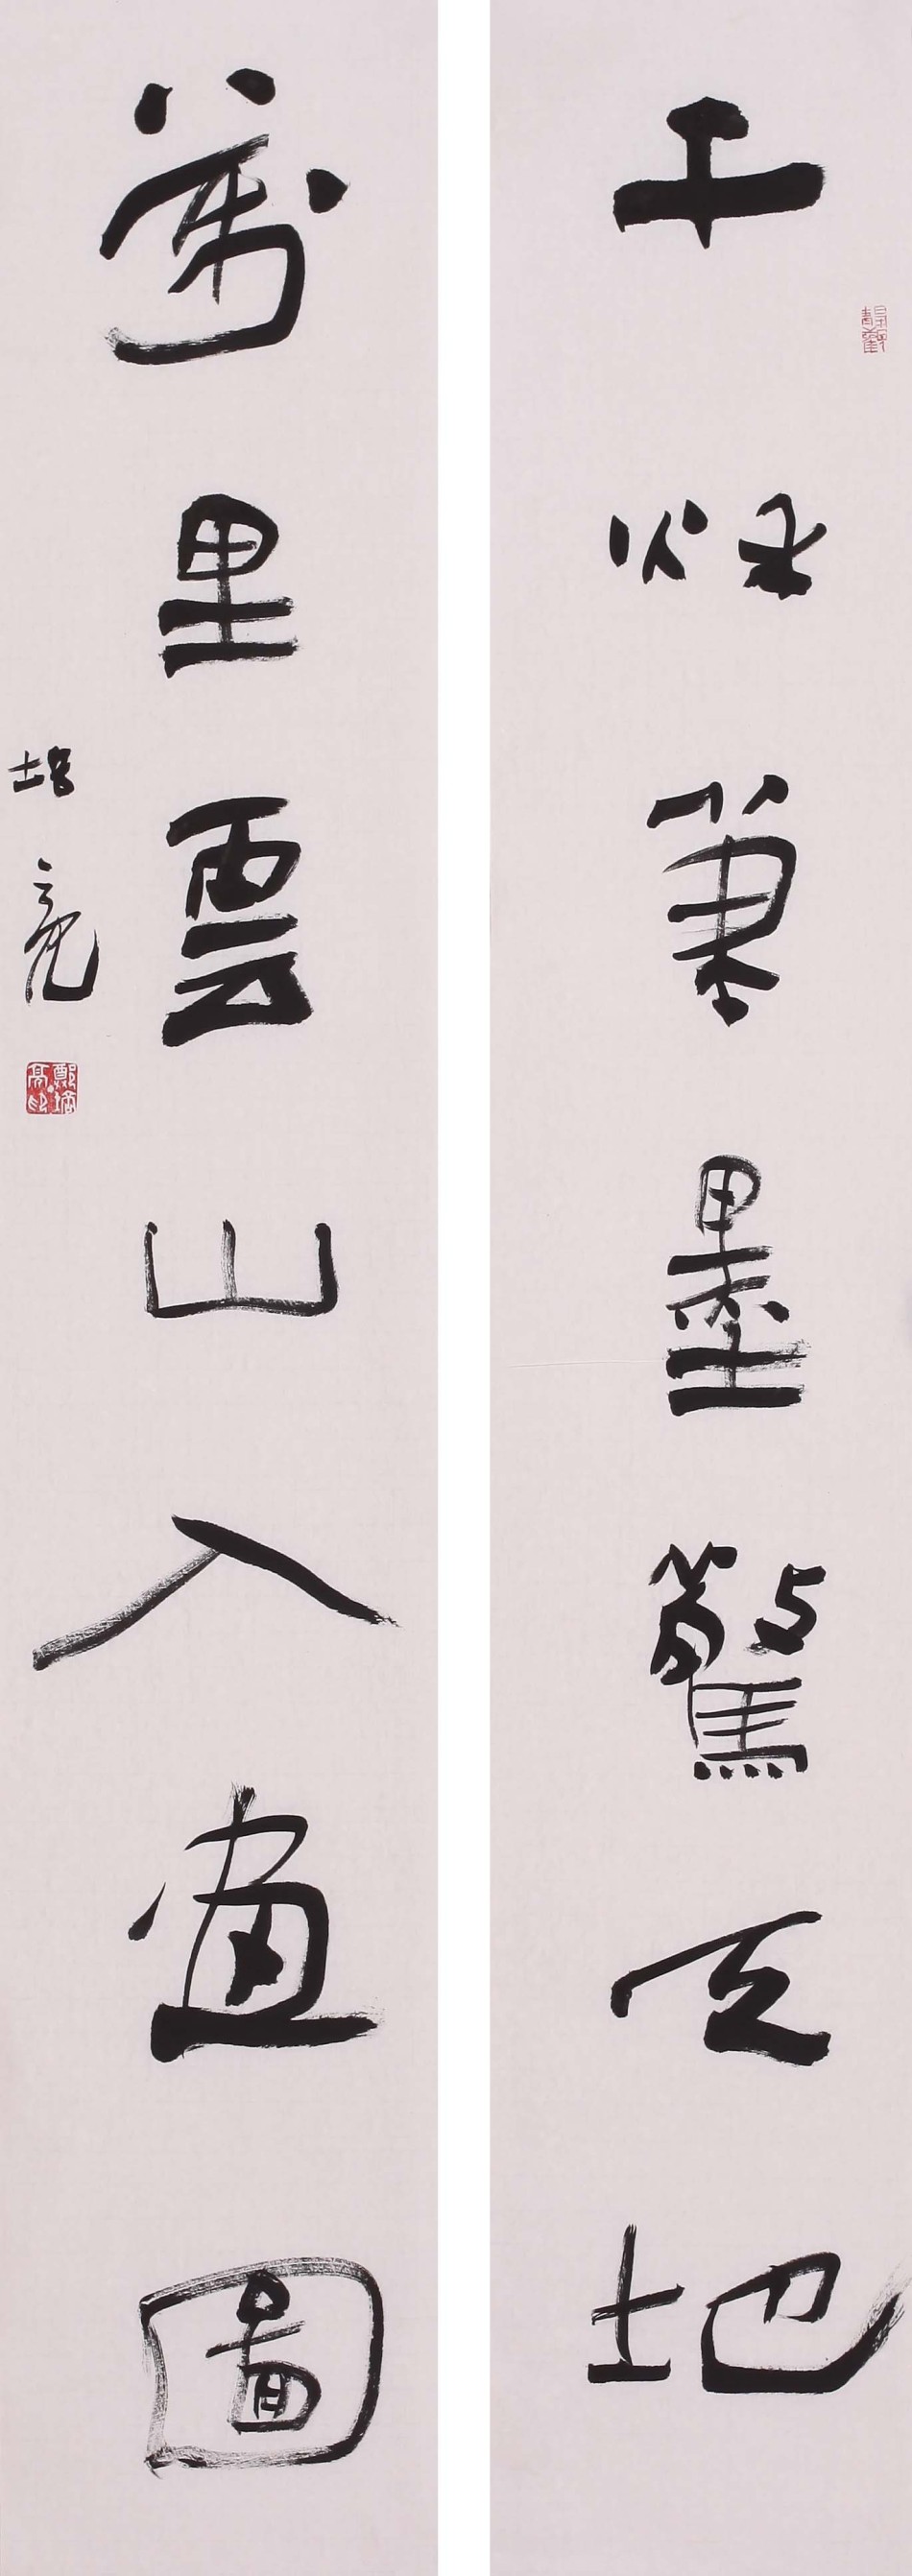 千秋筆墨驚天地
萬里雲山入畫圖
培亮
鄭培亮印